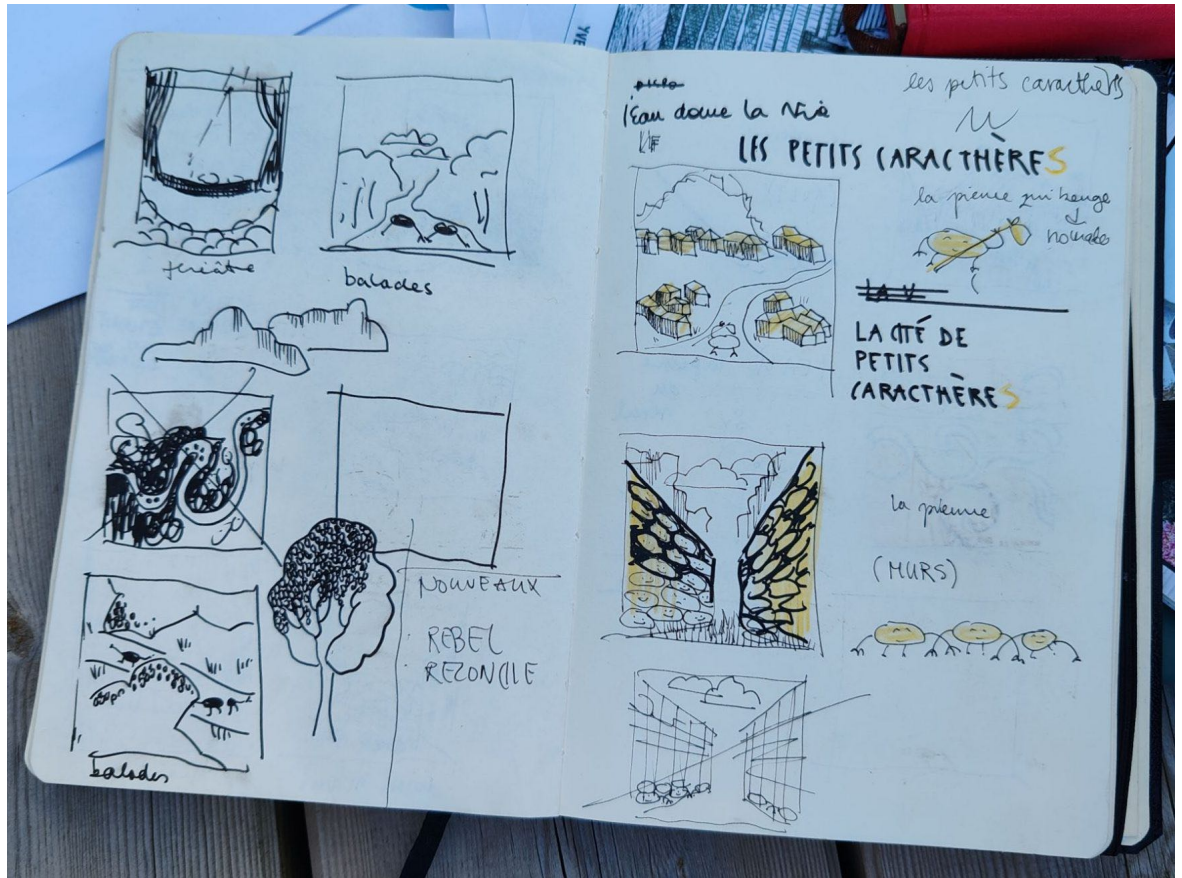 YVE
théâtre
balades
NOUVEAUX
REBEL
REZONCILE
balades
les petits caracthers
l'eau doue la
LES PETITS CARACTHÈRES
la pierre qui bouge
nomades
LA V
LA CITÉ DE
PETITS
CARACTHÈRES
la pierre
(MURS)